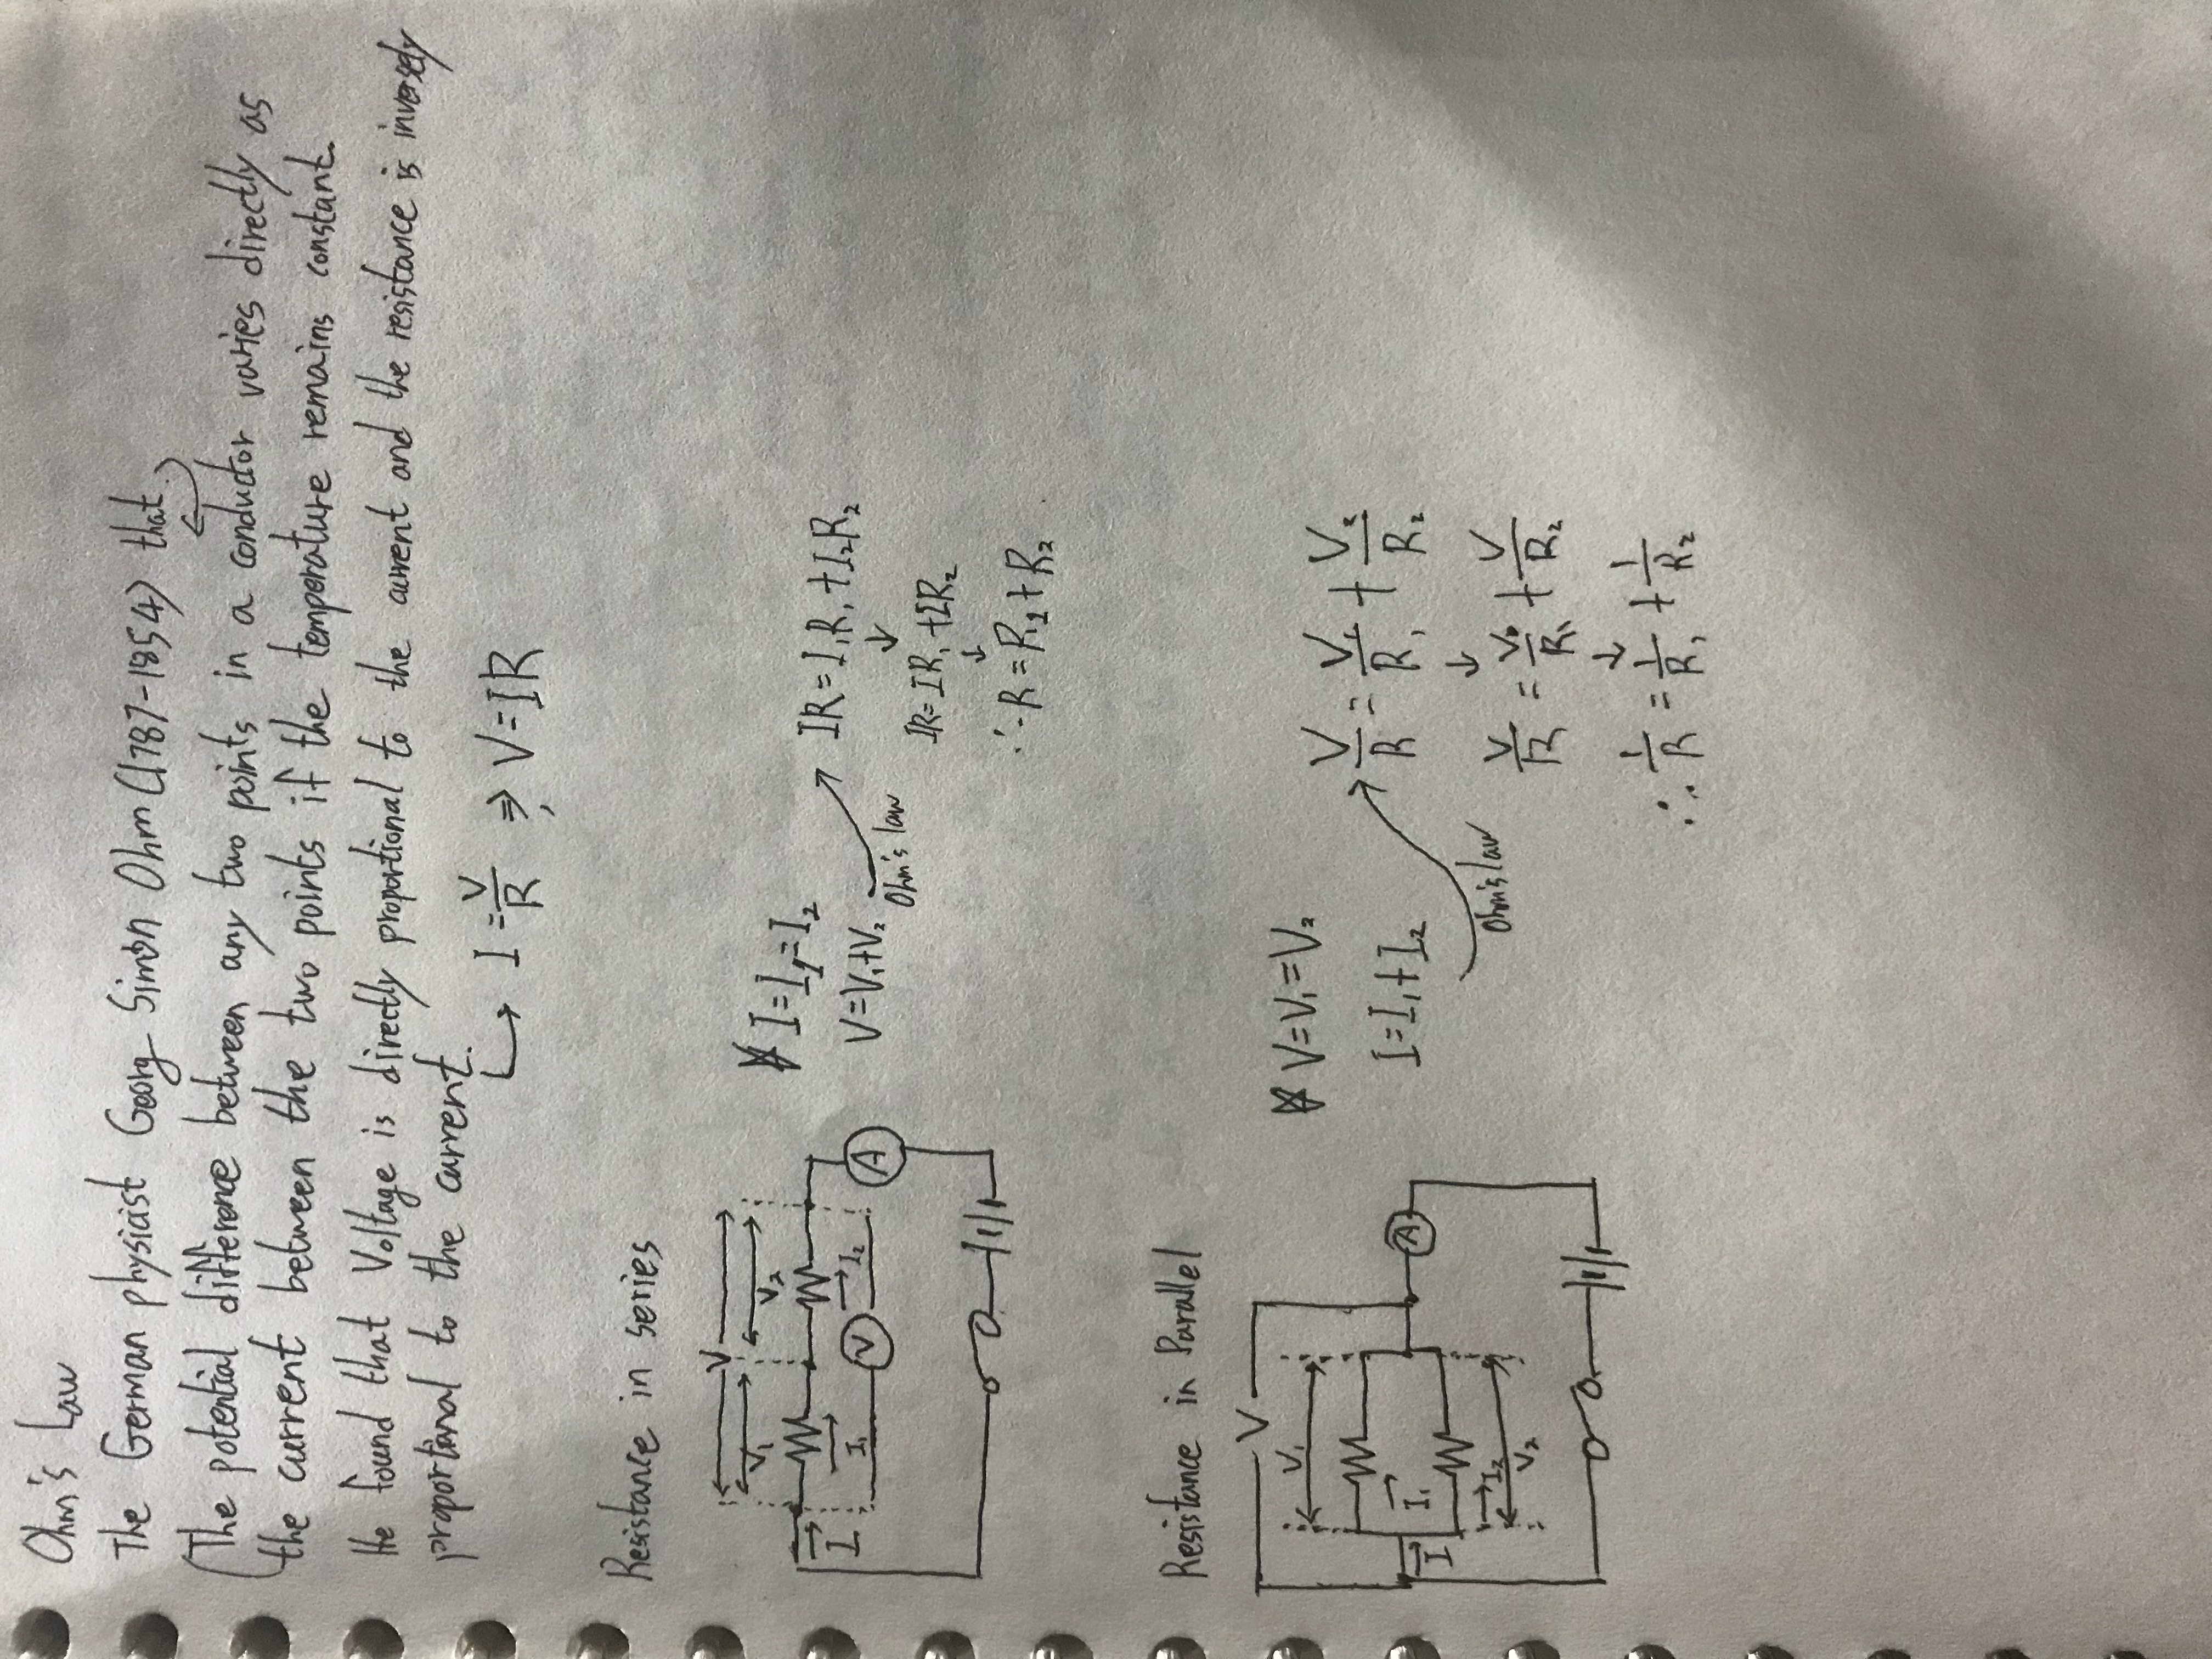 Ohm's Law
The German physicist Georg Simon Ohm (1787-1854) that
(The potential difference between any two points in a conductor varies directly as
the current between the two points if the temperature remains constant.
He found that Voltage is directly proportional to the current and the resistance is inversely
proportional to the current.
I = V/R ⇒, V = IR
Resistance in series
V
V₁ V₂
I I₁ V I₂ A
* I = I₁ = I₂
V = V₁ + V₂
Ohm's law
IR = I₁R₁ + I₂R₂
↓
IR = IR₁ + IR₂
↓
∴ R = R₁ + R₂
Resistance in Parallel
V
V₁
I I₁ A
I₂
V₂
* V = V₁ = V₂
I = I₁ + I₂
Ohm's law
V/R = V₁/R₁ + V₂/R₂
↓
V/R = V/R₁ + V/R₂
↓
∴ 1/R = 1/R₁ + 1/R₂